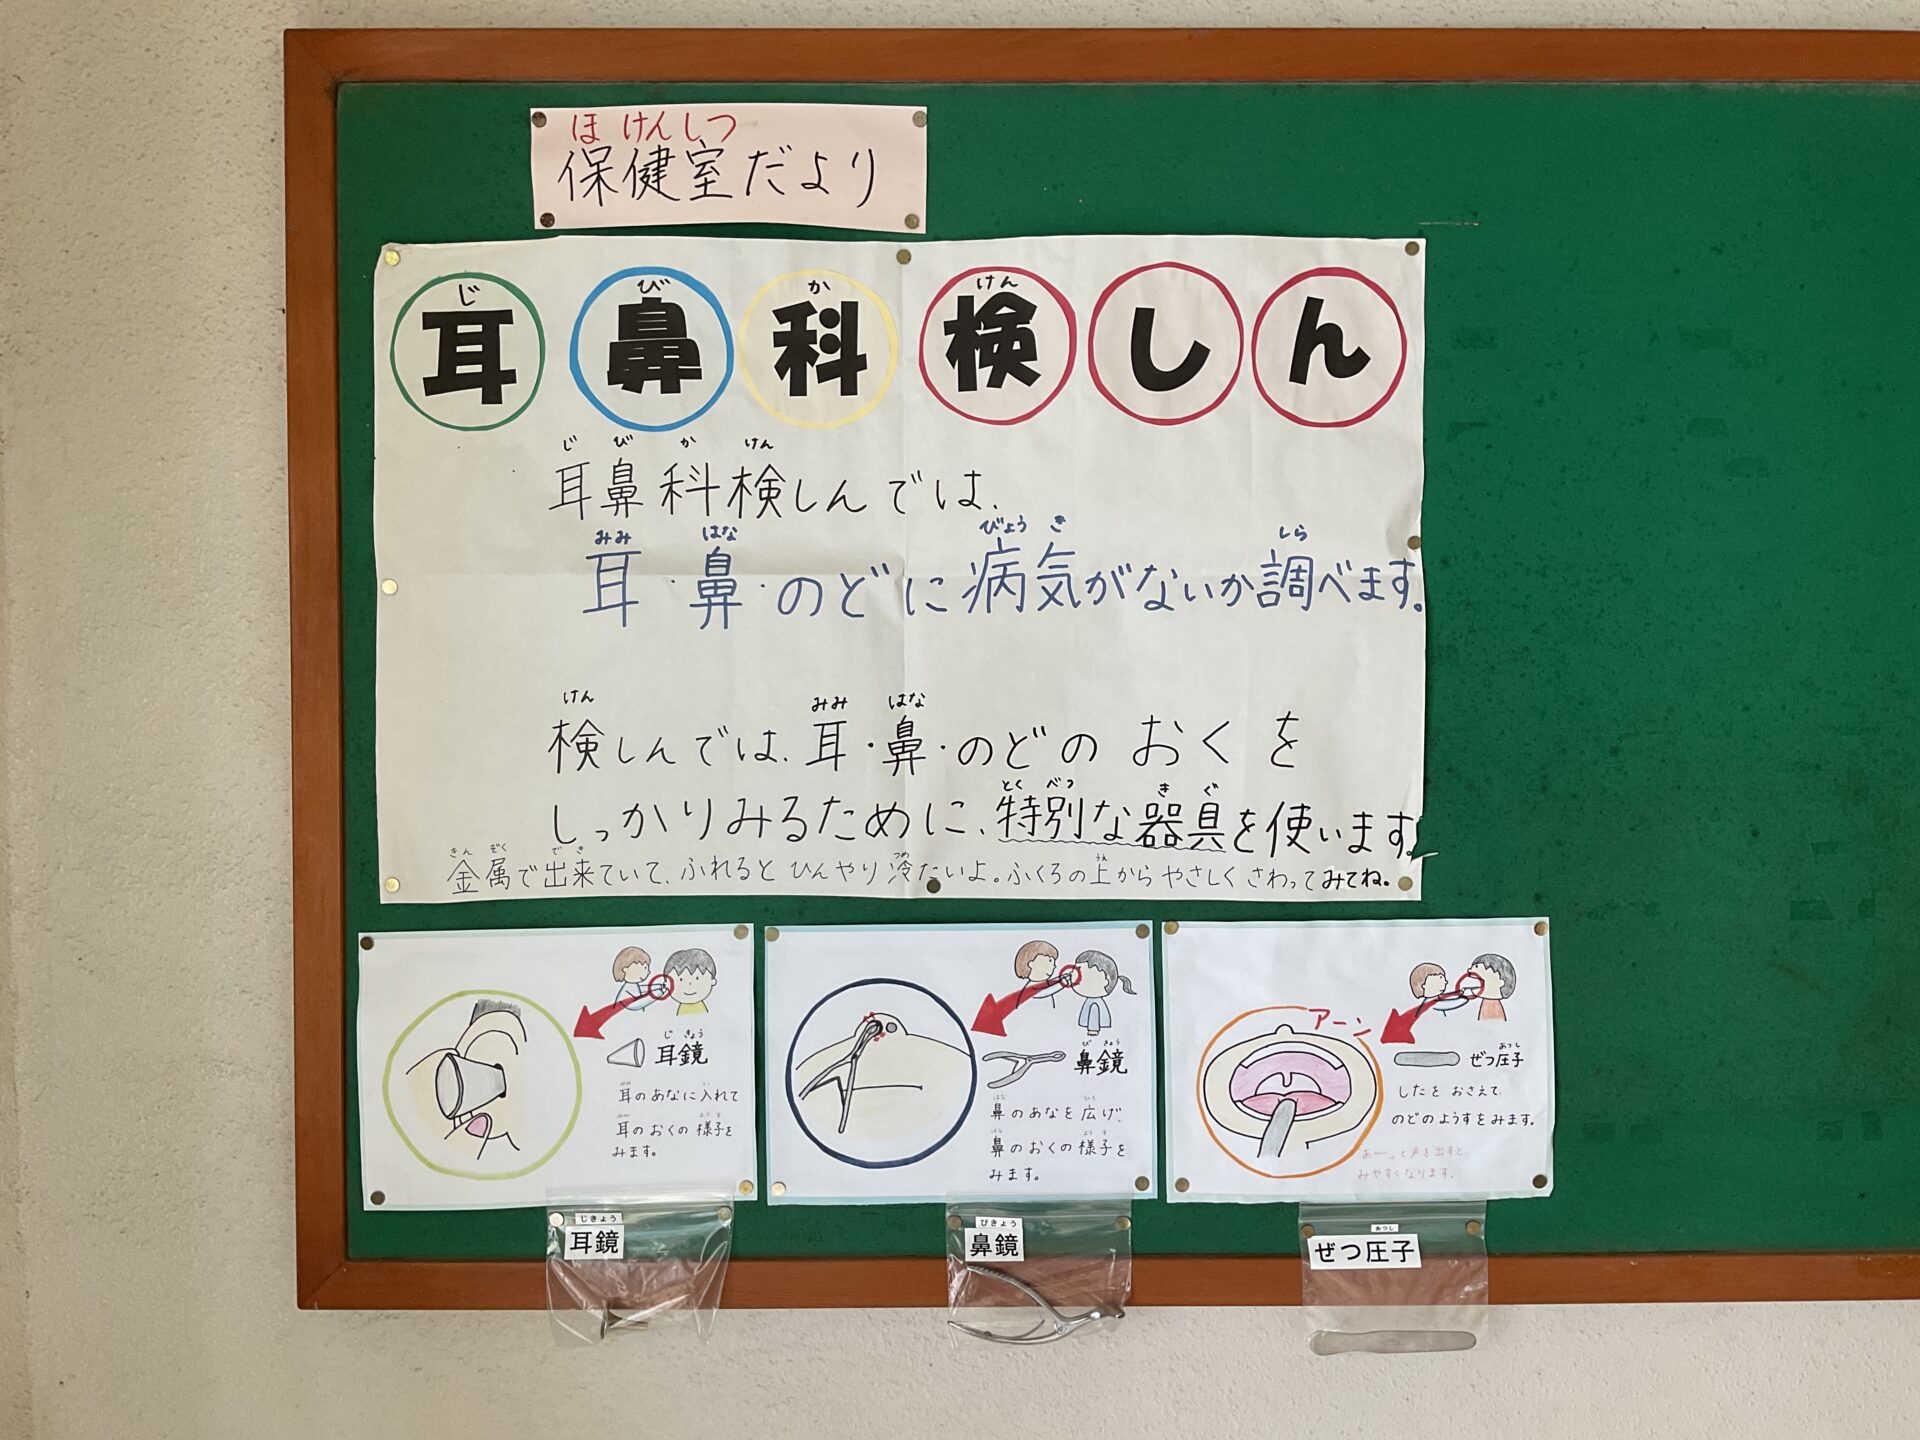 ほけんしつ
保健室だより
じ び か けん
耳鼻科検しん
じ び か けん
耳鼻科検しんでは、
みみ はな びょう き しら
耳・鼻・のどに病気がないか調べます。
けん みみ はな
検しんでは、耳・鼻・のどの おくを
とく べつ き ぐ
しっかりみるために、特別な器具を使います。
きん ぞく で き つめ うえ
金属で出来ていて、ふれると ひんやり 冷たいよ。ふくろの上から やさしく さわって みてね。
じ きょう
耳鏡
みみ い
耳のあなに入れて
みみ ようす
耳のおくの様子を
みます。
び きょう
鼻鏡
はな ひろ
鼻のあなを広げ、
はな ようす
鼻のおくの様子を
みます。
アーン
あっし
ぜつ圧子
したを おさえて、
のどのようすをみます。
「あ〜」と声を出すと、
みやすくなります。
じきょう
耳鏡
びきょう
鼻鏡
あつし
ぜつ圧子